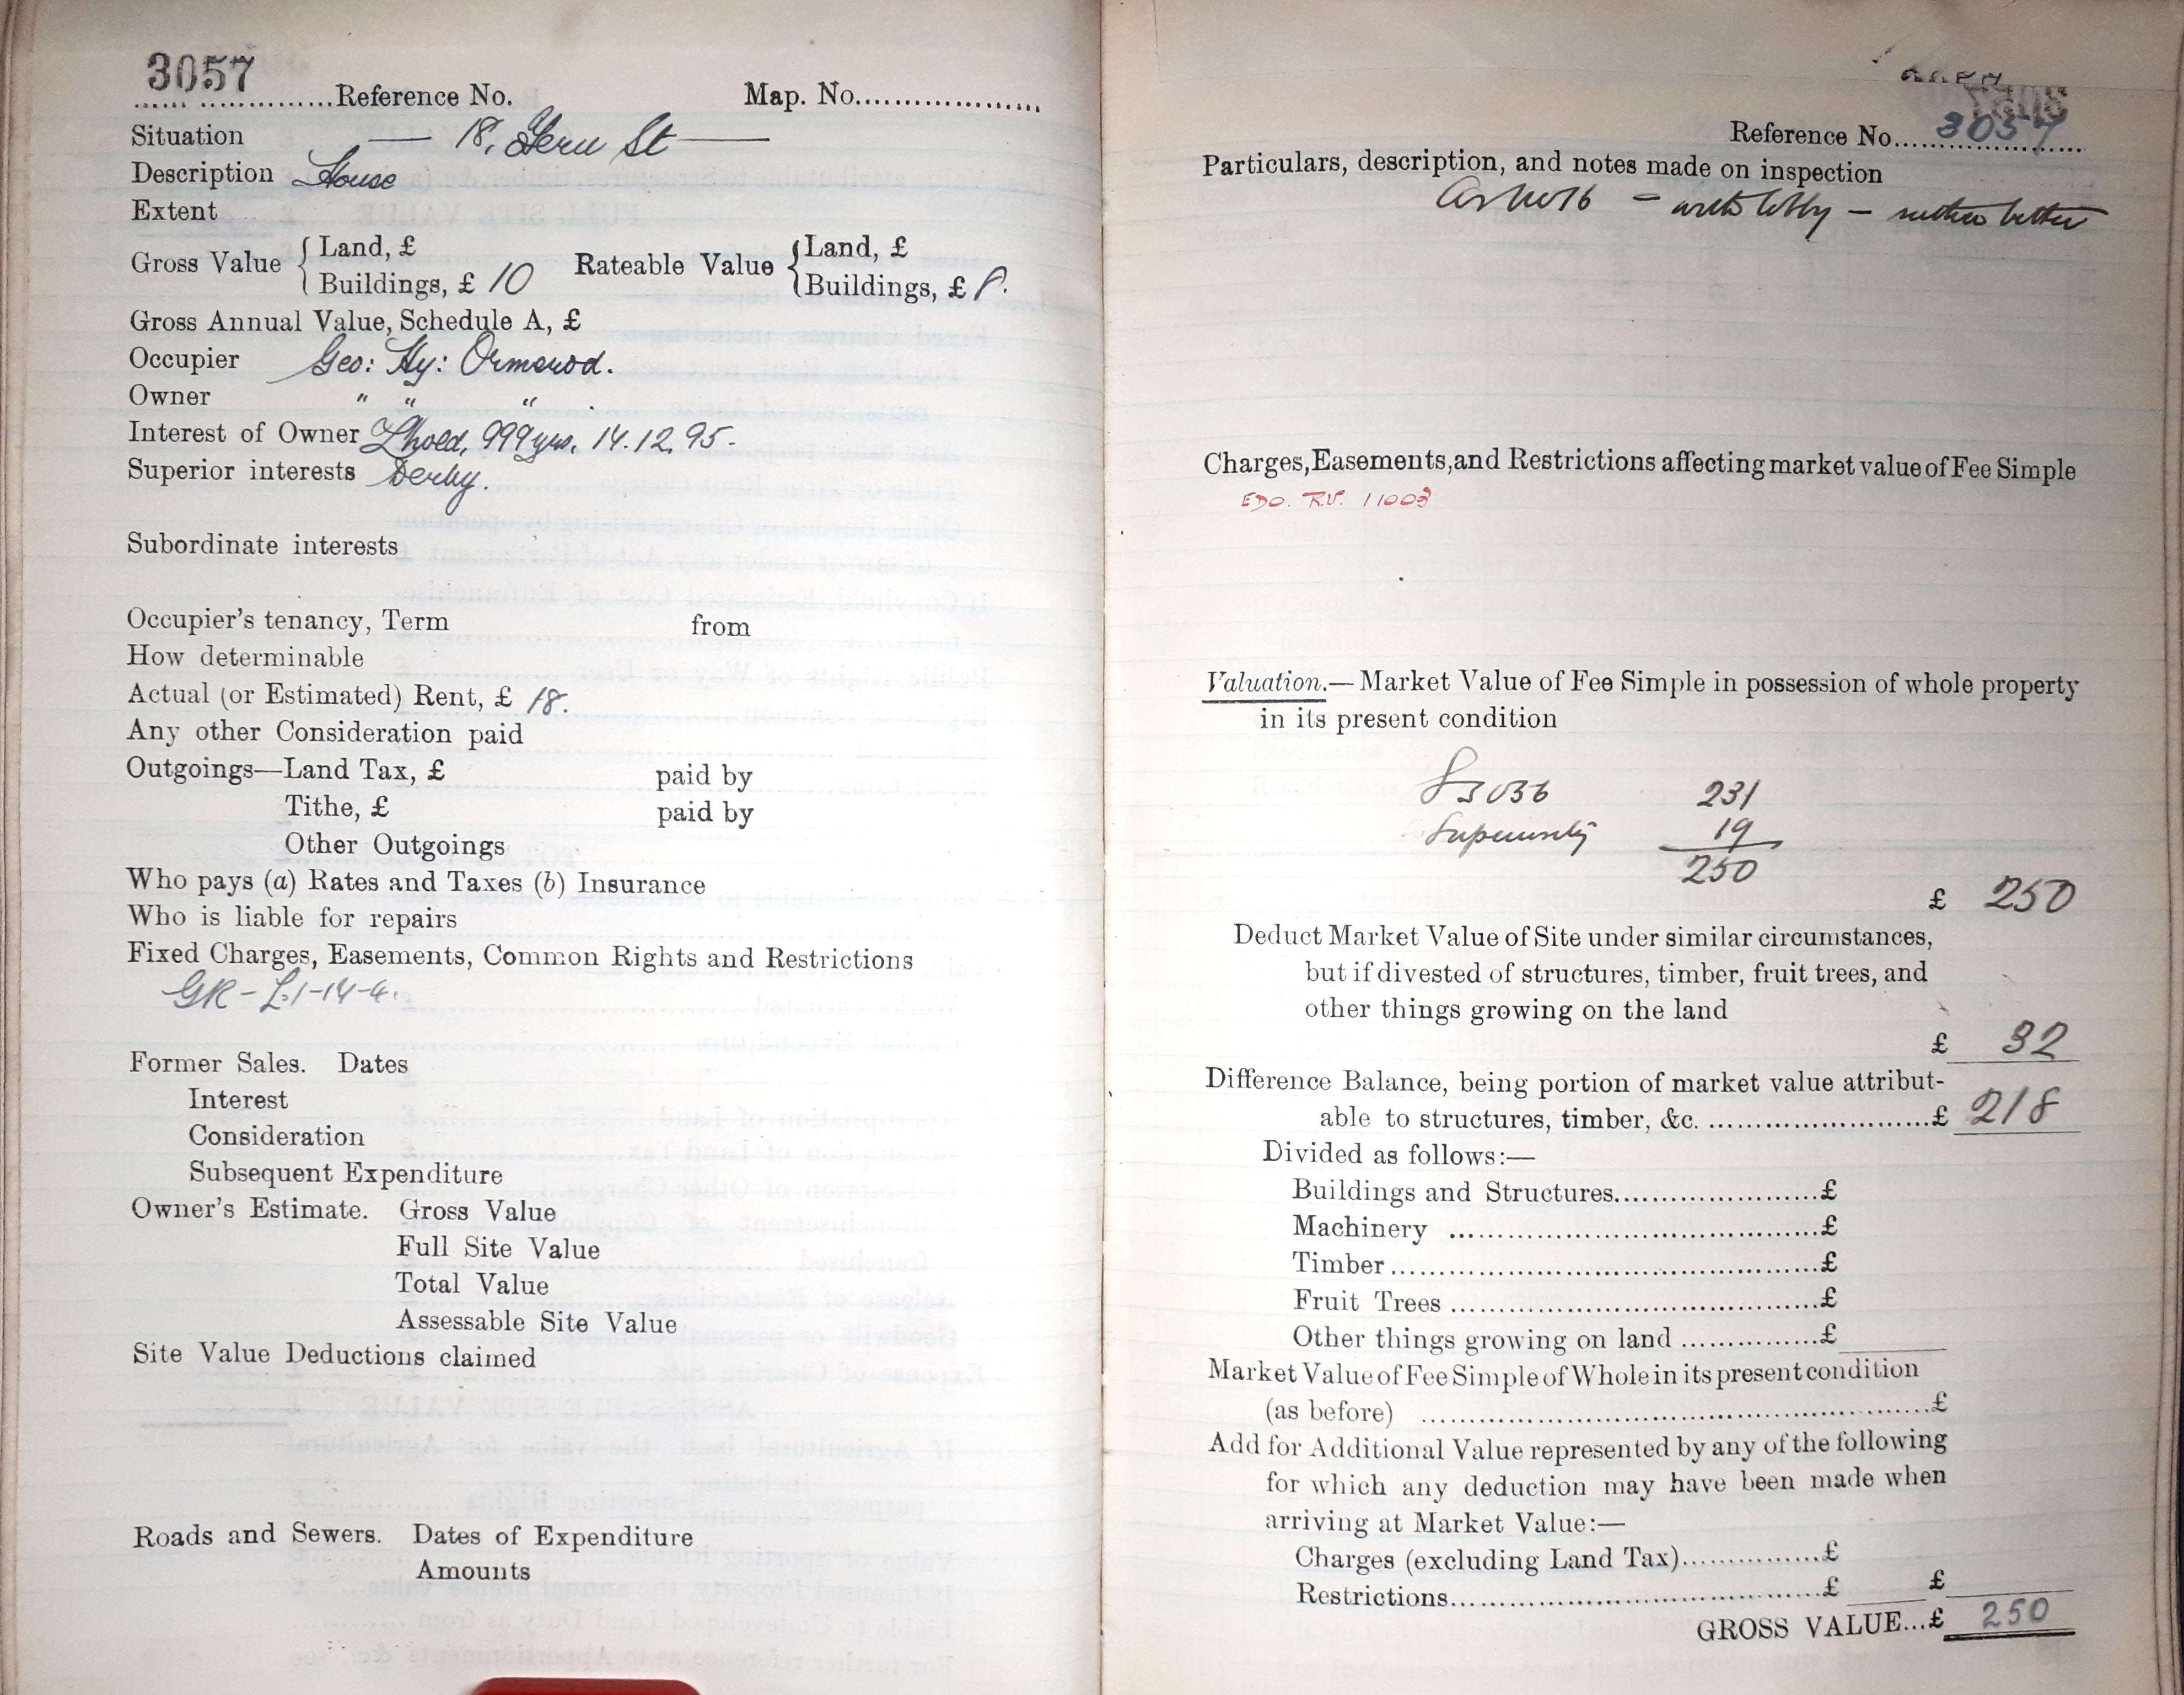 3057
Reference No. Map. No.
Situation — 18, Fern St —
Description House
Extent
Gross Value { Land, £
Buildings, £ 10
Rateable Value { Land, £
Buildings, £ 8.
Gross Annual Value, Schedule A, £
Occupier Geo: Hy: Ormerod.
Owner " " "
Interest of Owner L'hold, 999 yrs, 14.12.95.
Superior interests Derby.
Subordinate interests
Occupier's tenancy, Term from
How determinable
Actual (or Estimated) Rent, £ 18.
Any other Consideration paid
Outgoings—Land Tax, £ paid by
Tithe, £ paid by
Other Outgoings
Who pays (a) Rates and Taxes (b) Insurance
Who is liable for repairs
Fixed Charges, Easements, Common Rights and Restrictions
GR - £1-14-4.
Former Sales. Dates
Interest
Consideration
Subsequent Expenditure
Owner's Estimate. Gross Value
Full Site Value
Total Value
Assessable Site Value
Site Value Deductions claimed
Roads and Sewers. Dates of Expenditure
Amounts
Reference No. 3057
Particulars, description, and notes made on inspection
— with lobby — rather better
Charges, Easements, and Restrictions affecting market value of Fee Simple
EDO. R.V. 11003
Valuation.— Market Value of Fee Simple in possession of whole property
in its present condition
3056 231
Superiority 19
250
£ 250
Deduct Market Value of Site under similar circumstances,
but if divested of structures, timber, fruit trees, and
other things growing on the land
£ 32
Difference Balance, being portion of market value attribut-
able to structures, timber, &c. £ 218
Divided as follows:—
Buildings and Structures £
Machinery £
Timber £
Fruit Trees £
Other things growing on land £
Market Value of Fee Simple of Whole in its present condition
(as before) £
Add for Additional Value represented by any of the following
for which any deduction may have been made when
arriving at Market Value:—
Charges (excluding Land Tax) £
Restrictions £ £
GROSS VALUE...£ 250